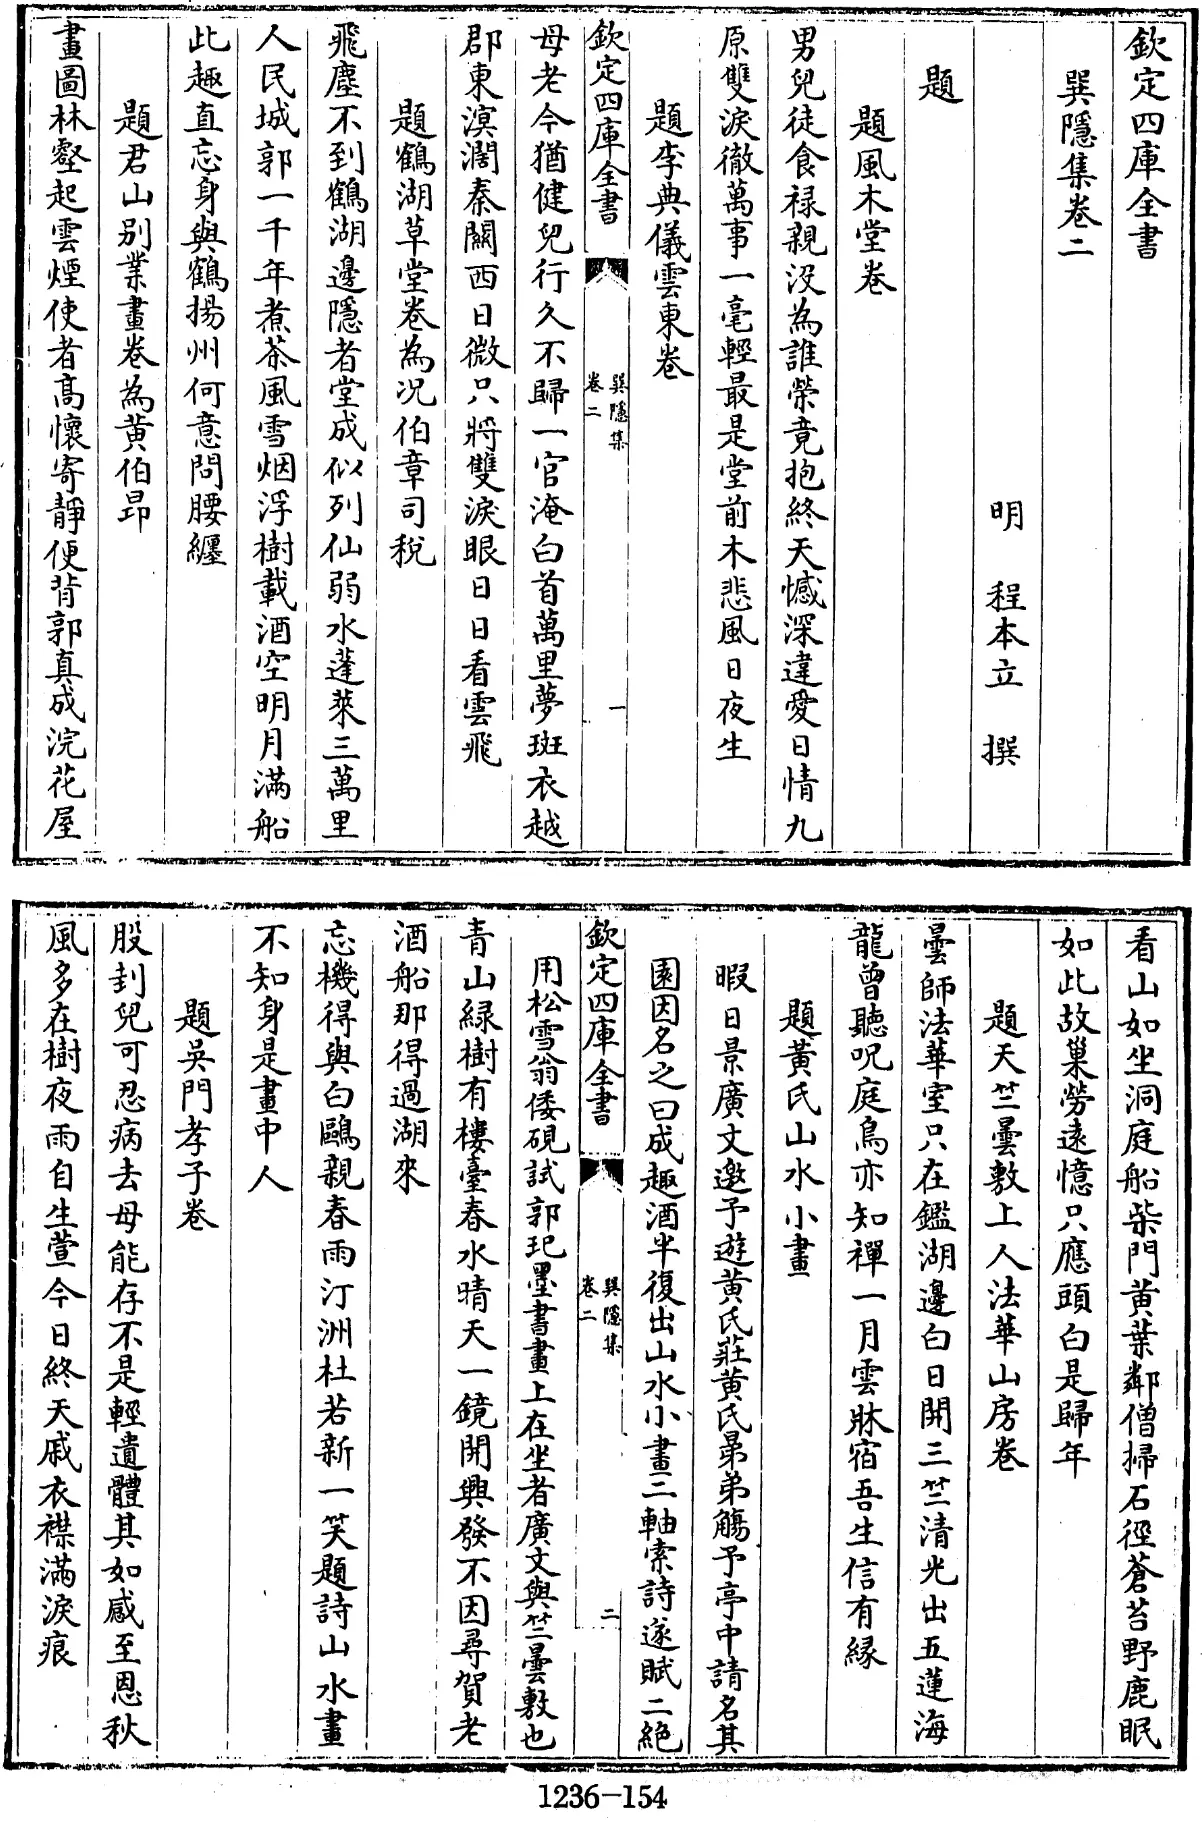 欽定四庫全書
巽隱集卷二
明 程本立 撰
題
題風木堂卷
男兒徒食祿親沒為誰榮竟抱終天憾深違愛日情九
原雙淚徹萬事一毫輕最是堂前木悲風日夜生
題李典儀雲東卷
欽定四庫全書
巽隱集
卷二
一
母老今猶健兒行久不歸一官淹白首萬里夢斑衣越
郡東溟濶秦關西日微只將雙淚眼日日看雲飛
題鶴湖草堂卷為况伯章司稅
飛塵不到鶴湖邊隱者堂成似列仙弱水蓬萊三萬里
人民城郭一千年煮茶風雪烟浮樹載酒空明月滿船
此趣直忘身與鶴揚州何意問腰纏
題君山别業畫卷為黄伯昂
畫圖林壑起雲煙使者高懷寄靜便背郭真成浣花屋
看山如坐洞庭船柴門黄葉鄰僧掃石徑蒼苔野鹿眠
如此故巢勞遠憶只應頭白是歸年
題天竺曇敷上人法華山房卷
曇師法華室只在鑑湖邊白日開三竺清光出五蓮海
龍曾聽呪庭鳥亦知禪一月雲牀宿吾生信有緣
題黄氏山水小畫
暇日景廣文邀予遊黄氏莊黄氏昴弟觴予亭中請名其
園因名之曰成趣酒半復出山水小畫二軸索詩遂賦二絶
欽定四庫全書
巽隱集
卷二
二
用松雪翁倭硯試郭玘墨書畫上在坐者廣文與竺曇敷也
青山緑樹有樓臺春水晴天一鏡開興發不因尋賀老
酒船那得過湖來
忘機得與白鷗親春雨汀洲杜若新一笑題詩山水畫
不知身是畫中人
題吳門孝子卷
股刲兒可忍病去母能存不是輕遺體其如感至恩秋
風多在樹夜雨自生萱今日終天戚衣襟滿淚痕
1236-154